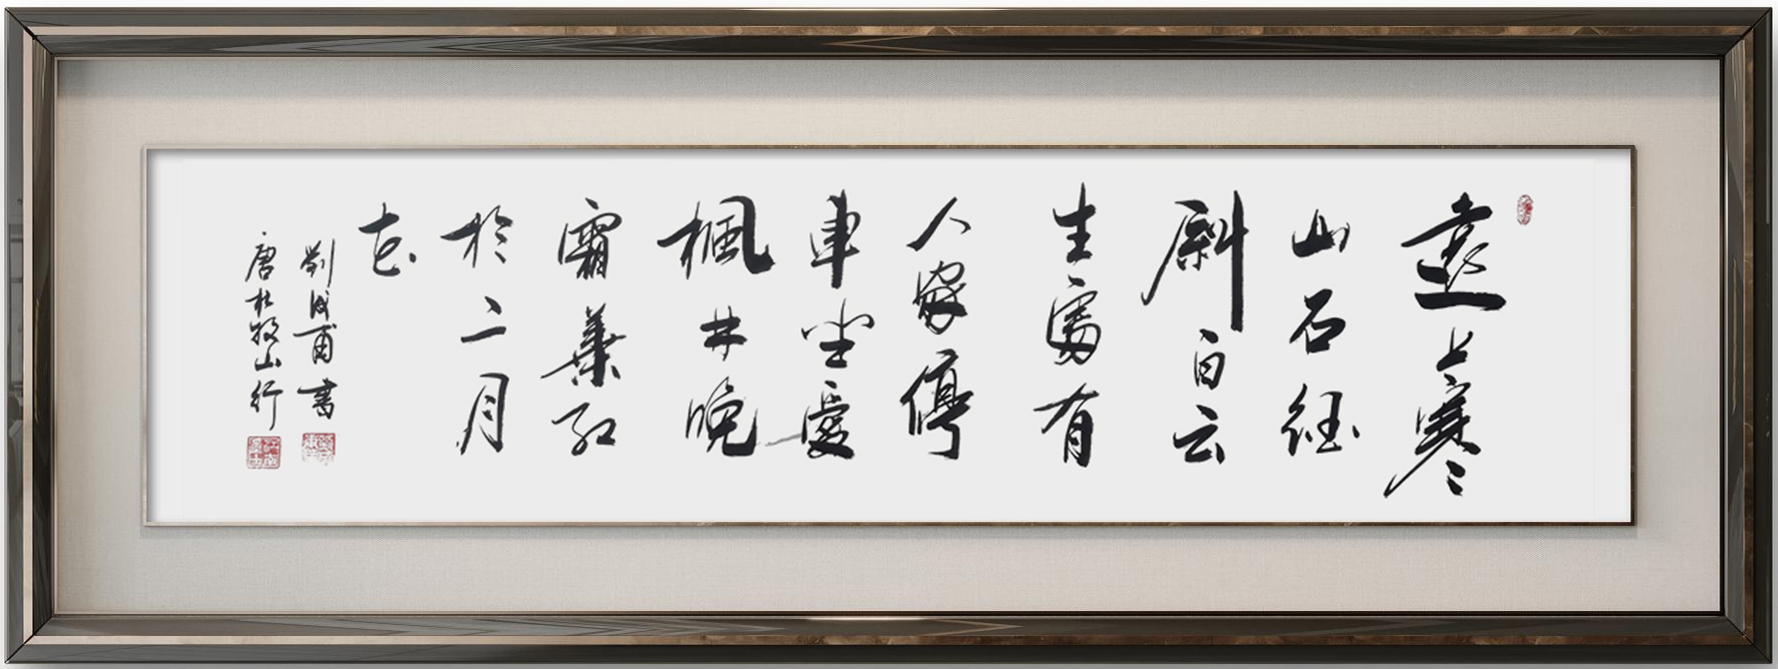 遠上寒
山石徑
斜白云
生處有
人家停
車坐愛
楓林晚
霜葉紅
於二月
花
劉成甫書
唐杜牧山行